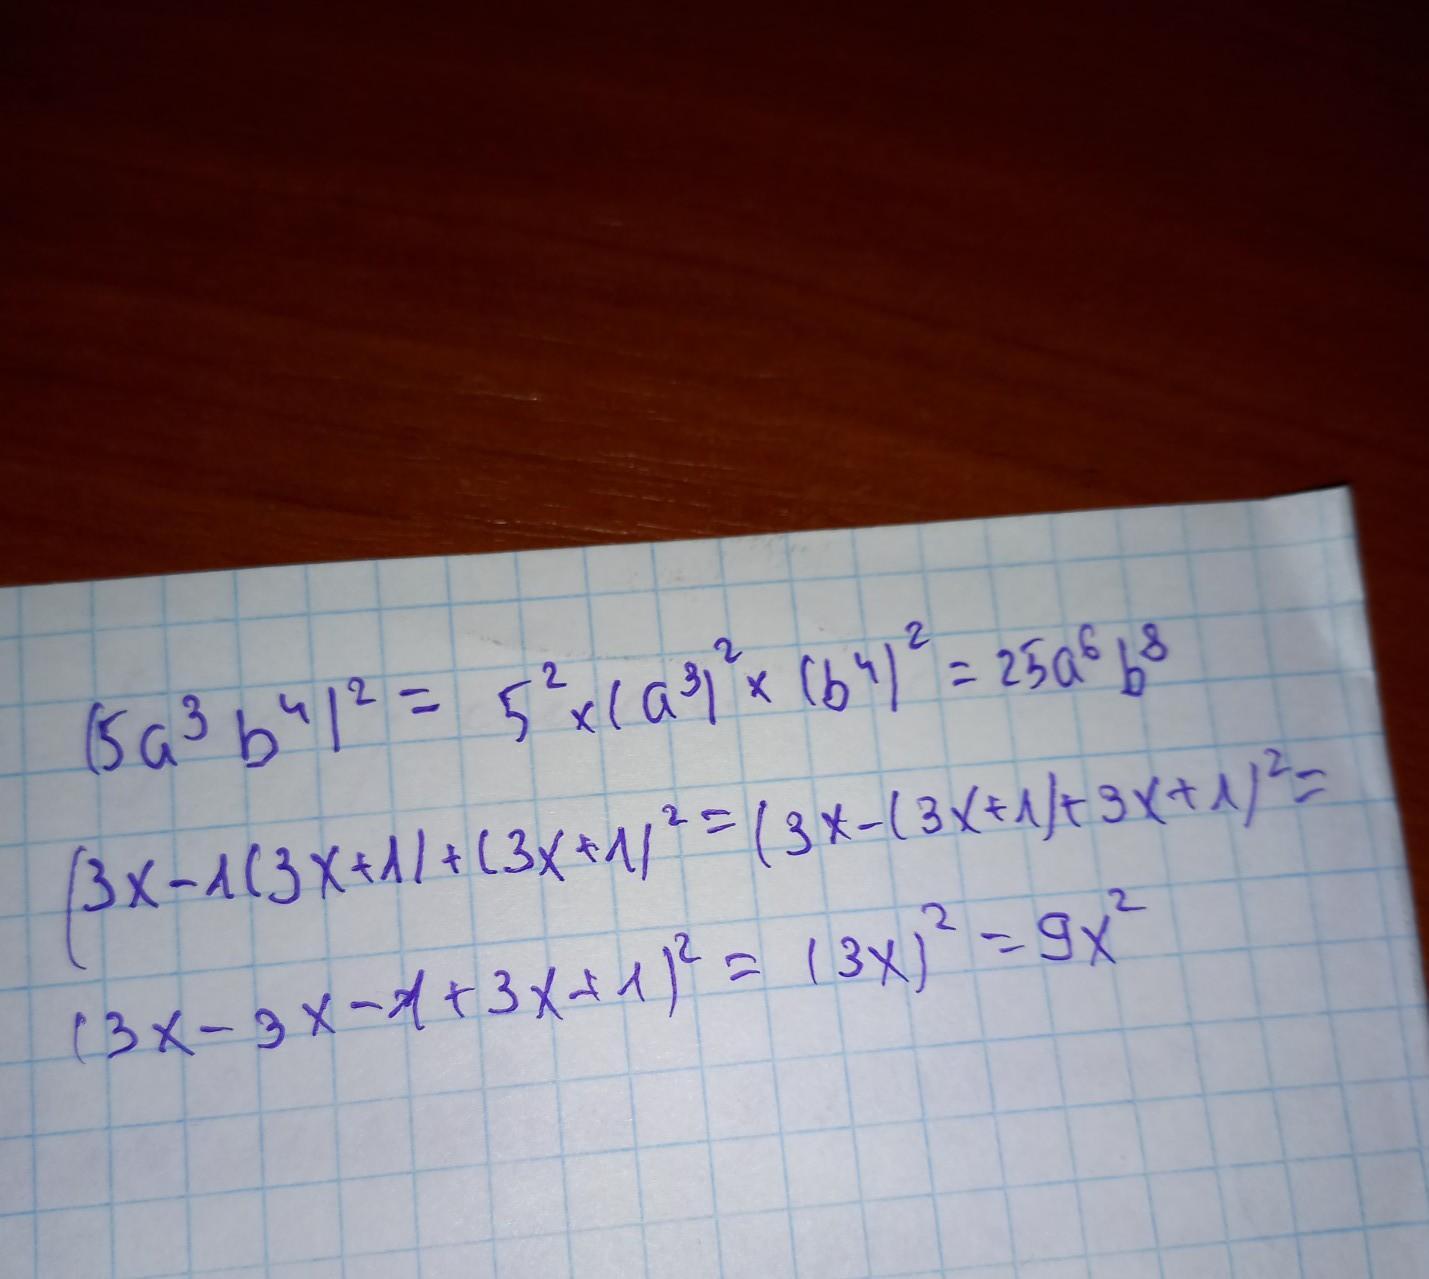 (5a³b⁴)² = 5² × (a³)² × (b⁴)² = 25a⁶b⁸
(3x-1(3x+1)+(3x+1)² = (3x-(3x+1)+3x+1)² =
(3x-3x-1+3x+1)² = (3x)² = 9x²